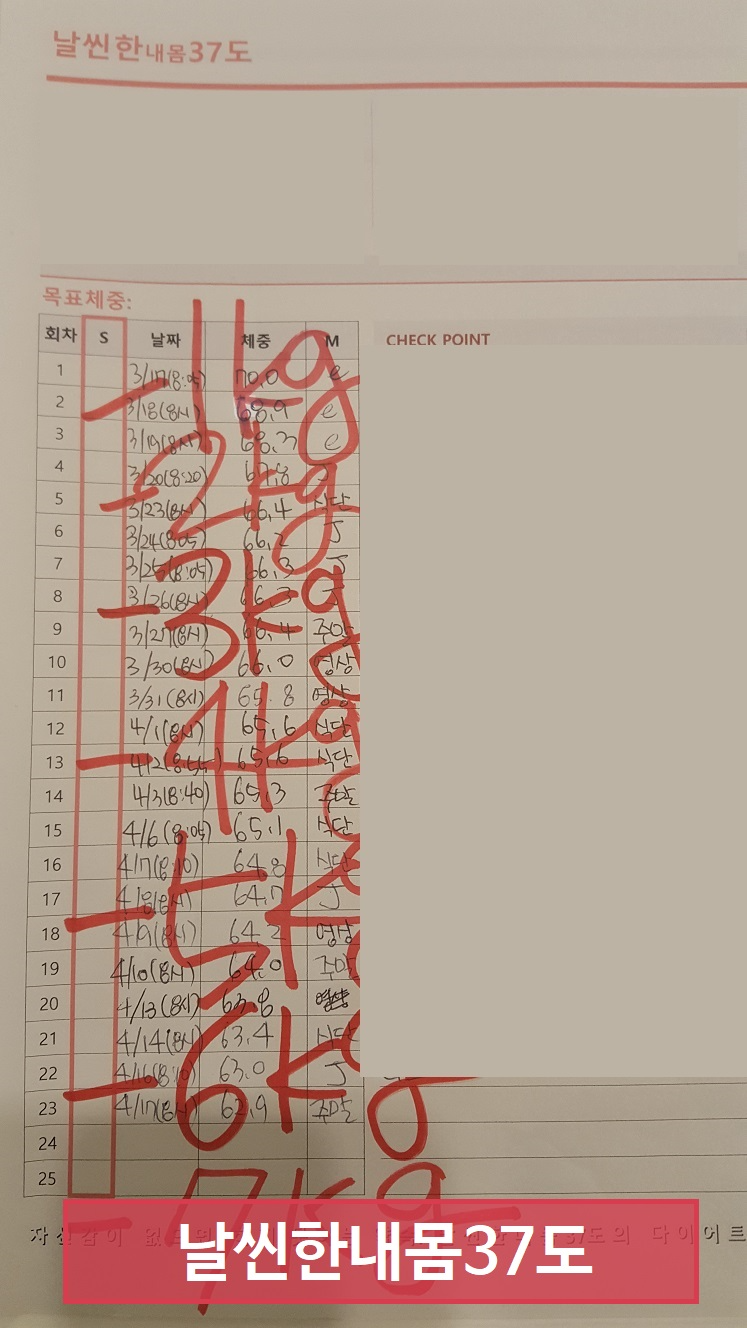 날씬한내몸37도
목표체중:
회차 S 날짜 체중 M
CHECK POINT
1 3/17(8:05) 70.0 e
2 3/18(8시) 68.9 e
3 3/19(8시) 68.3 e
4 3/20(8:20) 67.8 J
5 3/23(8시) 66.4 식단
6 3/24(8:05) 66.2 J
7 3/25(8:05) 66.3 J
8 3/26(8시) 66.3 J
9 3/27(8시) 66.4 주말
10 3/30(8시) 66.0 영상
11 3/31(8시) 65.8 영상
12 4/1(8시) 65.6 식단
13 4/2(8:55) 65.6 식단
14 4/3(8:40) 65.3 주말
15 4/6(8:05) 65.1 식단
16 4/7(8:10) 64.8 식단
17 4/8(8시) 64.7 J
18 4/9(8시) 64.2 영상
19 4/10(8시) 64.0 주말
20 4/13(8시) 63.8
21 4/14(8시) 63.4 식단
22 4/16(8:10) 63.0 J
23 4/17(8시) 62.9 주말
24
25
-1kg
-2kg
-3kg
-4kg
-5kg
-6kg
-7kg
자신감이 없
37도의 다이어트
날씬한내몸37도